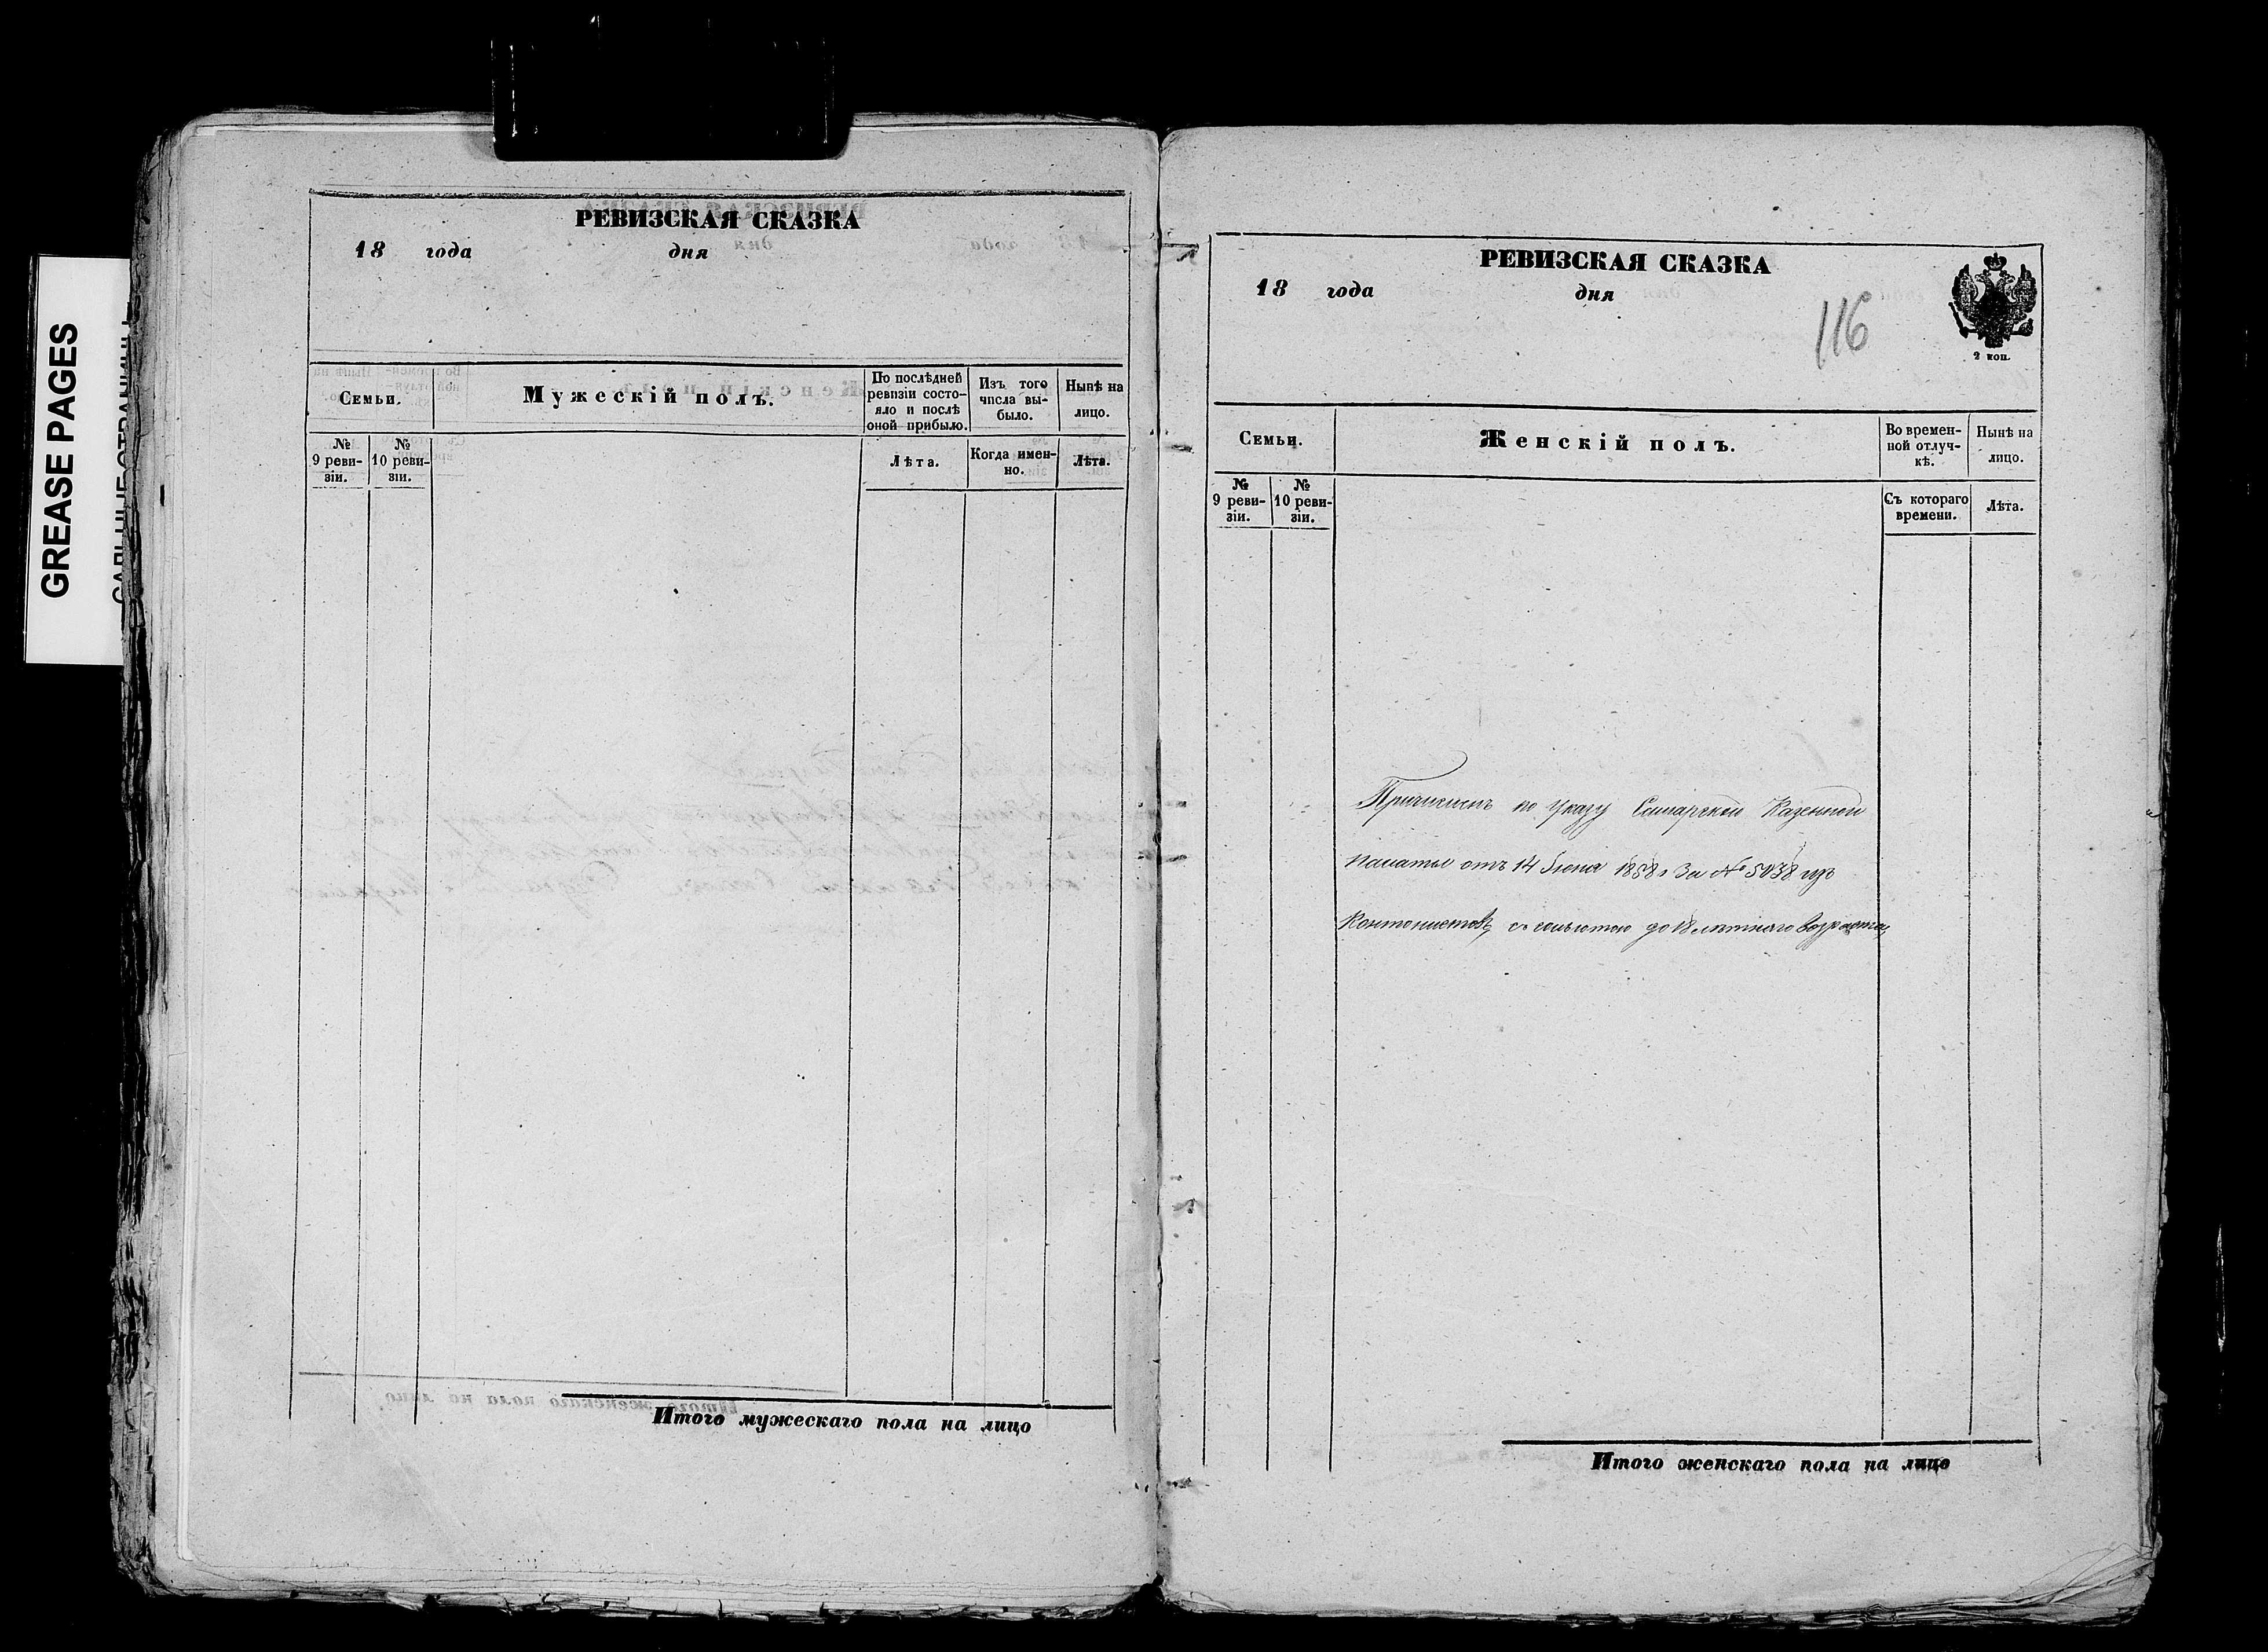 GREASE PAGES
РЕВИЗСКАЯ СКАЗКА
18 года дня
Семьи.
Мужескій полъ.
По послѣдней ревизіи состо-
яло и послѣ оной прибыло.
Изъ того числа вы-
было.
Нынѣ на лицо.
№ 9 реви-
зіи.
№ 10 реви-
зіи.
Лѣта.
Когда имен-
но.
Лѣта.
Итого мужескаго пола на лицо
РЕВИЗСКАЯ СКАЗКА
18 года дня
116
2 коп.
Семьи.
Женскій полъ.
Во времен-
ной отлуч-
кѣ.
Нынѣ на лицо.
№ 9 реви-
зіи.
№ 10 реви-
зіи.
Съ котораго времени.
Лѣта.
Причисленъ по указу Самарской Казенной
палаты отъ 14 Іюня 1858 г За № 5038 изъ
Кантонистовъ до 18 лѣтняго возраста
Итого женскаго пола на лицо